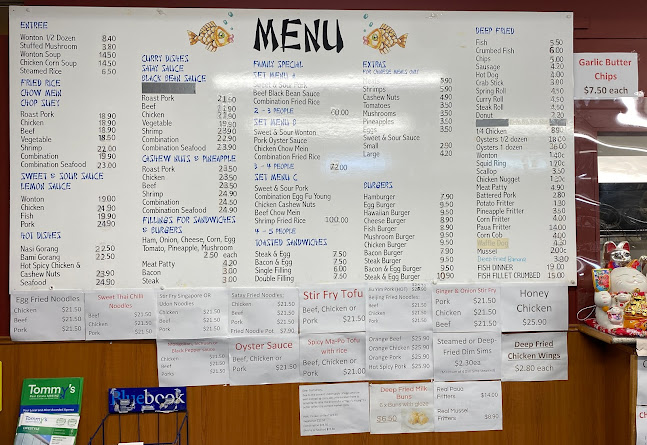 MENU
ENTREE
Wonton 1/2 Dozen 8.40
Stuffed Mushroom 3.80
Wonton Soup 14.50
Chicken Corn Soup 14.50
Steamed Rice 6.50
FRIED RICE
CHOW MEIN
CHOP SUEY
Roast Pork 18.90
Chicken 18.90
Beef 18.90
Vegetable 18.50
Shrimp 22.00
Combination 19.90
Combination Seafood 23.00
SWEET & SOUR SAUCE
LEMON SAUCE
Wonton 19.00
Chicken 24.90
Fish 19.90
Pork 24.90
HOT DISHES
Nasi Gorang 22.50
Bami Gorang 22.50
Hot Spicy Chicken &
Cashew Nuts 23.50
Seafood 24.90
CURRY DISHES
SATAY SAUCE
BLACK BEAN SAUCE
Roast Pork 21.50
Beef 21.50
Chicken
Vegetable 19.50
Shrimp 23.90
Combination 22.90
Combination Seafood 23.90
CASHEW NUTS & PINEAPPLE
Roast Pork 23.50
Chicken 23.50
Beef 23.50
Shrimp 24.90
Combination 24.90
Combination Seafood 24.90
FILLINGS FOR SANDWICHES
& BURGERS
Ham, Onion, Cheese, Corn, Egg
Tomato, Pineapple, Mushroom
2.50 each
Meat Patty 4.20
Bacon 3.00
Steak 3.00
FAMILY SPECIAL
SET MENU A
Sweet & Sour Pork
Beef Black Bean Sauce
Combination Fried Rice
2 - 3 PEOPLE 60.00
SET MENU B
Sweet & Sour Wonton
Pork Oyster Sauce
Chicken Chow Mein
Combination Fried Rice
3 - 4 PEOPLE 72.00
SET MENU C
Sweet & Sour Pork
Combination Egg Fu Young
Chicken Cashew Nuts
Beef Chow Mein
Shrimp Fried Rice 100.00
4 - 5 PEOPLE
TOASTED SANDWICHES
Steak & Egg 7.50
Bacon & Egg 7.50
Single Filling 6.00
Double Filling 7.50
EXTRAS
FOR CHINESE MEALS ONLY
5.90
Shrimps 5.90
Cashew Nuts 4.90
Tomatoes 3.50
Mushrooms 3.50
Pineapples 3.50
Eggs 3.50
Sweet & Sour Sauce
Small 2.90
Large 4.20
BURGERS
Hamburger 7.90
Egg Burger
Hawaiian Burger
Cheese Burger
Fish Burger
Mushroom Burger
Chicken Burger
Bacon Burger
Steak Burger
Bacon & Egg Burger
Steak & Egg Burger 10.50
DEEP FRIED
Fish 5.50
Crumbed Fish 6.50
Chips 5.00
Sausage 4.20
Hot Dog 4.00
Crab Stick 3.80
Spring Roll 4.50
Curry Roll 4.50
Steak Roll 4.50
Donut 2.20
1/4 Chicken 8.90
Oysters 1/2 dozen 18.00
Oysters 1 dozen 36.00
Wonton 1.40c
Squid Ring 1.20c
Scallop 3.50
Chicken Nugget 1.20c
Meat Patty 4.90
Battered Pork 2.80
Potato Fritter 1.30
Pineapple Fritter 3.50
Corn Fritter 4.00
Paua Fritter 14.00
Corn Cob 4.00
Waffle Dog 4.30
Mussel 2.00c
Deep Fried Banana 3.50
FISH DINNER 19.00
FISH FILLET CRUMBED 15.00
Garlic Butter
Chips
$7.50 each
Egg Fried Noodles
Chicken $21.50
Pork $21.50
Beef $21.50
Sweet Thai Chilli
Noodles
Chicken $21.50
Beef $21.50
Pork $21.50
Stir Fry Singapore OR
Udon Noodles
Chicken $21.50
Beef $21.50
Pork $21.50
Satay Fried Noodles
Chicken $21.50
Beef $21.50
Pork $21.50
Fried Noodle Pot $7.90
Stir Fry Tofu
Beef, Chicken or
Pork $21.50
Beijing Fried Noodles
Chicken $21.50
Beef $21.50
Pork $21.50
Ginger & Onion Stir Fry
Pork $21.50
Chicken $21.50
Beef $21.50
Honey
Chicken
$25.90
Black Pepper Sauce
Beef $21.50
Chicken $21.50
Pork $21.50
Oyster Sauce
Beef, Chicken or
Pork $21.50
Spicy Ma-Po Tofu
with rice
Beef, Chicken or
Pork $21.00
Orange Beef $21.50
Orange Chicken $21.50
Orange Pork $21.50
Hot Spicy Pork $21.50
Steamed or Deep-
Fried Dim Sims
$2.30ea
Deep Fried
Chicken Wings
$2.80 each
Deep Fried Milk
Buns
$6.50
Real Paua
Fritters $14.00
Real Mussel
Fritters $8.90
Tommy's
Tommy's
bluebook